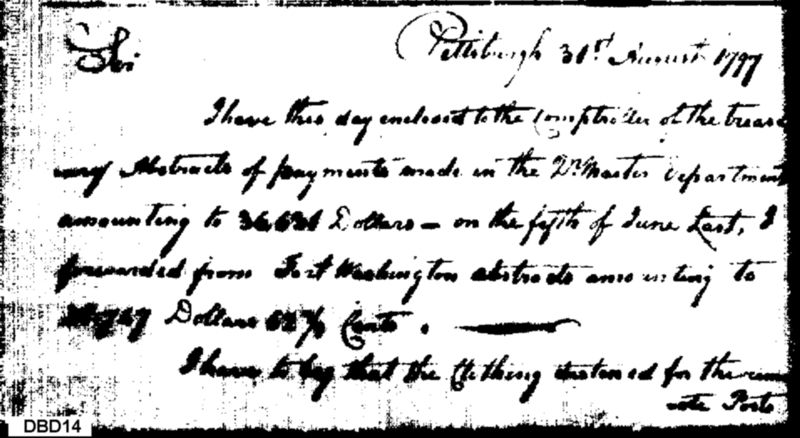 Pittsburgh 31st August 1797
Sir
I have this day enclosed to the Comptroller of the treas
ury Abstracts of payments made in the Qr Master Department
amounting to Dollars — on the fifth of June Last, I
forwarded from Fort Washington abstracts amounting to
Dollars Cents.
I have to beg that the Clothing destened for the rem
ote Posts
DBD14